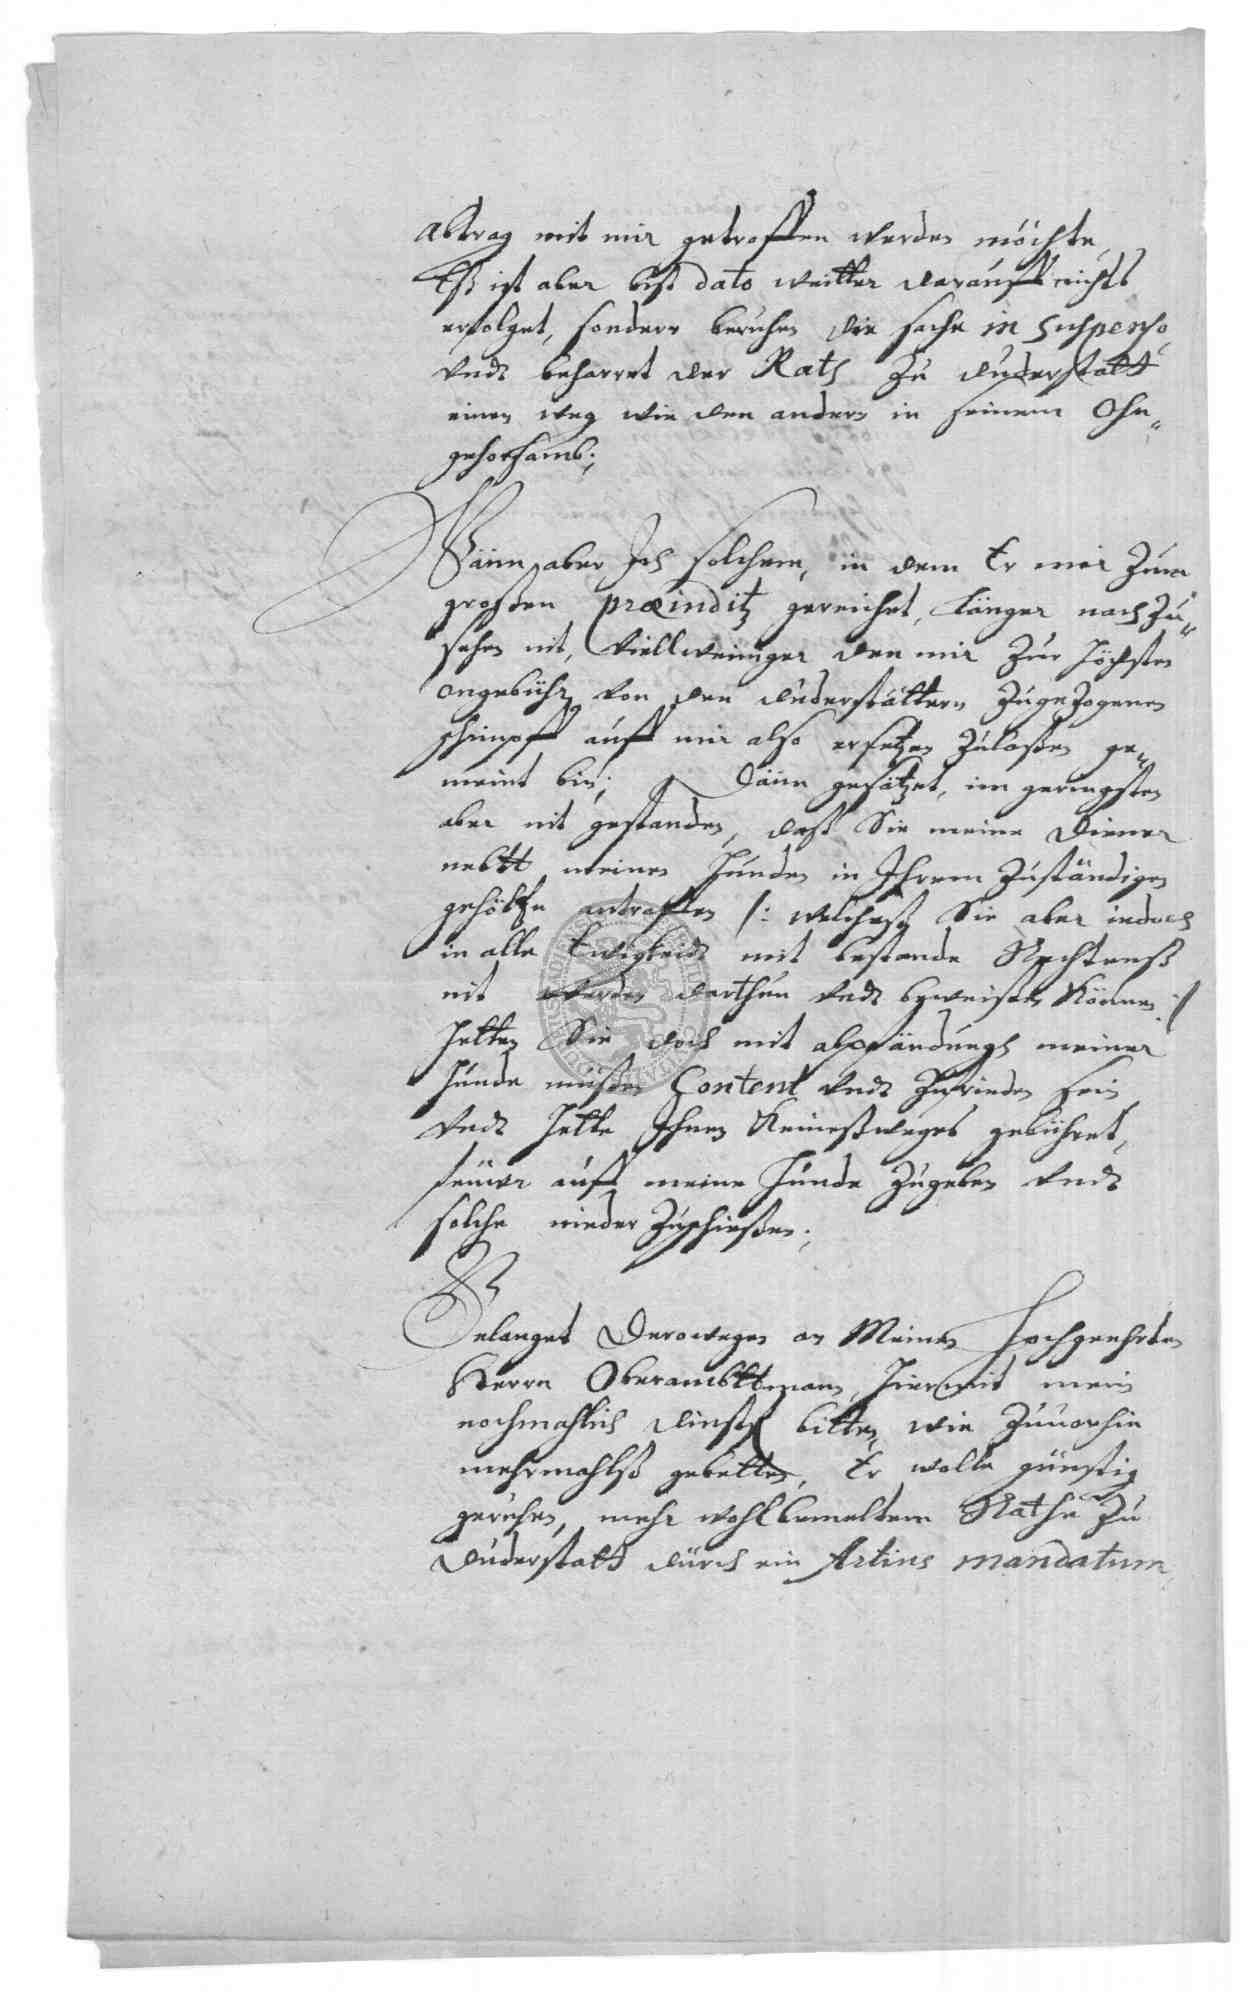 abtrag mit mir getroffen werden möchte,
Eß ist aber biß dato weitter darauff nichts
erfolget, sondern beruhen die sache in suspenso
undt beharret der Rath zu Duderstatt
einen weg wie den andern in seinem Ohn„
gehorsamb;
Wann aber Ich solchem, in dem Er mir zum
großen præiuditz gereichet, länger nach zu„
sehen nit, viellweiniger den mir zur höchsten
ongebühr von den Duderstättern zugezogenen
schimpff auff mir also ersetzen zulaßen ge„
meint bin; Dann gesätzet, im geringsten
aber nit gestanden, daß Sie meine Diener
nebtt meinen Hunden in Ihrem zuständigen
gehöltze antroffen /: welcheß Sie aber iedoch
in alle Ewigkeidt mit bestande Rechtenß
nit werden darthun undt beweisen können :/
hetten Sie doch mit abpfändungh meiner
Hunde müßen Content undt zufrieden sein
undt hette Ihnen keineßweges gebühret,
feuwr auff meine Hunde zugeben undt
solche nieder zuschießen;
Gelanget Derowegen an Meinen Hochgeehrten
Herrn Oberambttmann, hiermit mein
nochmahlich dinstl bitten, wie zuuorhin
mehrmahlß gebetten, Er wolle günstig
geruhen, mehr wohlbemeltem Rathe zu
Duderstatt durch ein Artius mandatum